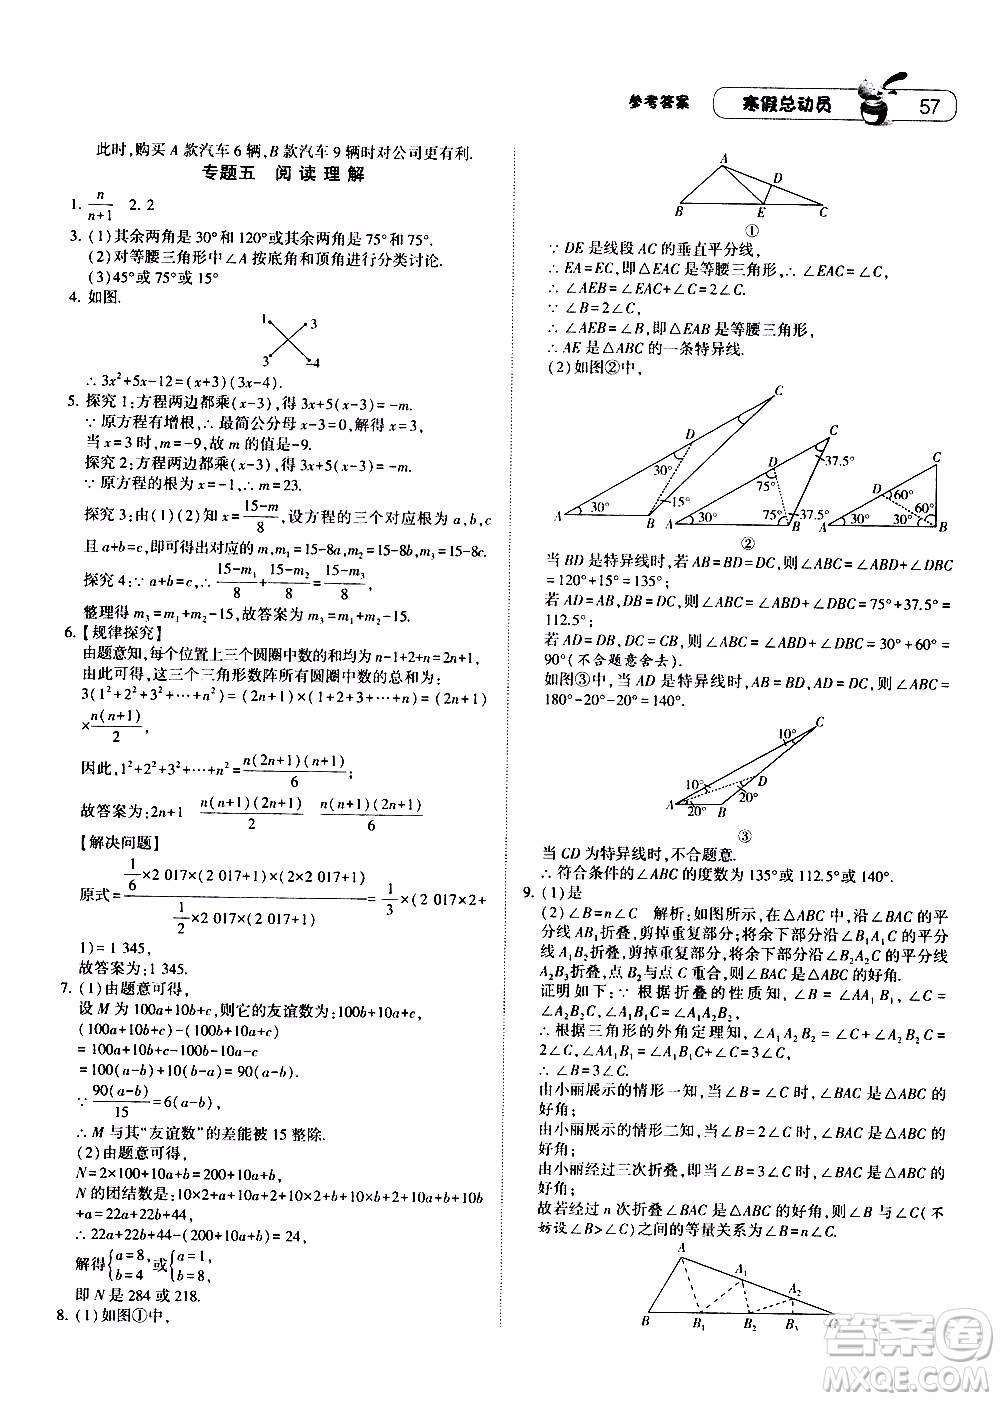 参考答案 寒假总动员 57
此时,购买 A 款汽车 6 辆,B 款汽车 9 辆时对公司更有利.
专题五 阅读理解
1. n/(n+1) 2. 2
3. (1)其余两角是 30°和 120°或其余两角是 75°和 75°.
(2)对等腰三角形中∠A 按底角和顶角进行分类讨论.
(3)45°或 75°或 15°
4. 如图.
1 3
3 -4
∴ 3x²+5x-12=(x+3)(3x-4).
5. 探究 1:方程两边都乘(x-3),得 3x+5(x-3)=-m.
∵ 原方程有增根,∴ 最简公分母 x-3=0,解得 x=3.
当 x=3 时,m=-9,故 m 的值是-9.
探究 2:方程两边都乘(x-3),得 3x+5(x-3)=-m.
∵ 原方程的根为 x=-1,∴ m=23.
探究 3:由(1)(2)知 x=(15-m)/8,设方程的三个对应根为 a,b,c
且 a+b=c,即可得出对应的 m,m₁=15-8a,m₂=15-8b,m₃=15-8c.
探究 4:∵ a+b=c,∴ (15-m₁)/8+(15-m₂)/8=(15-m₃)/8.
整理得 m₃=m₁+m₂-15,故答案为 m₃=m₁+m₂-15.
6. 【规律探究】
由题意知,每个位置上三个圆圈中数的和均为 n-1+2+n=2n+1,
由此可得,这三个三角形数阵所有圆圈中数的总和为:
3(1²+2²+3²+…+n²)=(2n+1)×(1+2+3+…+n)=(2n+1)
×n(n+1)/2,
因此,1²+2²+3²+…+n²=n(2n+1)(n+1)/6;
故答案为:2n+1 n(n+1)(2n+1)/2 n(n+1)(2n+1)/6
【解决问题】
原式=(1/6×2 017×(2 017+1)×(2 017×2+1))/(1/2×2 017×(2 017+1))=1/3×(2 017×2+
1)=1 345.
故答案为:1 345.
7. (1)由题意可得,
设 M 为 100a+10b+c,则它的友谊数为:100b+10a+c,
(100a+10b+c)-(100b+10a+c)
=100a+10b+c-100b-10a-c
=100(a-b)+10(b-a)=90(a-b),
∵ 90(a-b)/15=6(a-b),
∴ M 与其“友谊数”的差能被 15 整除.
(2)由题意可得,
N=2×100+10a+b=200+10a+b,
N 的团结数是:10×2+a+10a+2+10×2+b+10b+2+10a+b+10b
+a=22a+22b+44,
∴ 22a+22b+44-(200+10a+b)=24,
解得{a=8,b=4 或{a=1,b=8.
即 N 是 284 或 218.
8. (1)如图①中,
A D B E C
①
∵ DE 是线段 AC 的垂直平分线,
∴ EA=EC,即△EAC 是等腰三角形,∴ ∠EAC=∠C,
∴ ∠AEB=∠EAC+∠C=2∠C.
∵ ∠B=2∠C,
∴ ∠AEB=∠B,即△EAB 是等腰三角形,
∴ AE 是△ABC 的一条特异线.
(2)如图②中,
C D 30° 15° A 30° B
C D 37.5° 75° A 30° 75° B 37.5°
C D 60° 60° A 30° 30° B
②
当 BD 是特异线时,若 AB=BD=DC,则∠ABC=∠ABD+∠DBC
=120°+15°=135°;
若 AD=AB,DB=DC,则∠ABC=∠ABD+∠DBC=75°+37.5°=
112.5°;
若 AD=DB,DC=CB,则∠ABC=∠ABD+∠DBC=30°+60°=
90°(不合题意舍去).
如图③中,当 AD 是特异线时,AB=BD,AD=DC,则∠ABC=
180°-20°-20°=140°.
C 10° D 10° A 20° B 20°
③
当 CD 为特异线时,不合题意.
∴ 符合条件的∠ABC 的度数为 135°或 112.5°或 140°.
9. (1)是
(2)∠B=n∠C 解析:如图所示,在△ABC 中,沿∠BAC 的平
分线 AB₁折叠,剪掉重复部分;将余下部分沿∠B₁A₁C 的平分
线 A₁B₂折叠,剪掉重复部分;将余下部分沿∠B₂A₂C 的平分线
A₂B₃折叠,点 B₂与点 C 重合,则∠BAC 是△ABC 的好角.
证明如下:∵ 根据折叠的性质知,∠B=∠AA₁B₁,∠C=
∠A₂B₂C,∠A₁B₁C=∠A₁A₂B₂,
∴ 根据三角形的外角定理知,∠A₁A₂B₂=∠C+∠A₂B₂C=
2∠C.
由小丽展示的情形一知,当∠B=∠C 时,∠BAC 是△ABC 的
好角;
由小丽展示的情形二知,当∠B=2∠C 时,∠BAC 是△ABC 的
好角;
由小丽经过三次折叠,即当∠B=3∠C 时,∠BAC 是△ABC 的
好角;
故若经过 n 次折叠∠BAC 是△ABC 的好角,则∠B 与∠C(不
妨设∠B>∠C)之间的等量关系为∠B=n∠C.
A A₁ A₂ B B₁ B₂ B₃ C
答案圈